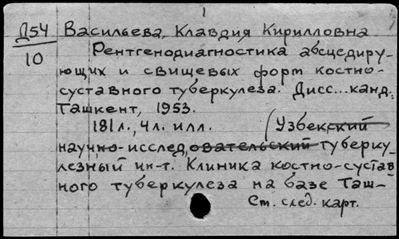 1
Д54 Васильева, Клавдия Кирилловна
10
Рентгенодиагностика абсцедиру-
ющих и свищевых форм костно-
суставного туберкулеза. Дисс...канд.
Ташкент, 1953.
181л., 4л. илл. (Узбекский
научно-исслед.овательский туберку-
лезный ин-т. Клиника костно-сустав
ного туберкулеза на базе Таш-
См. след. карт.